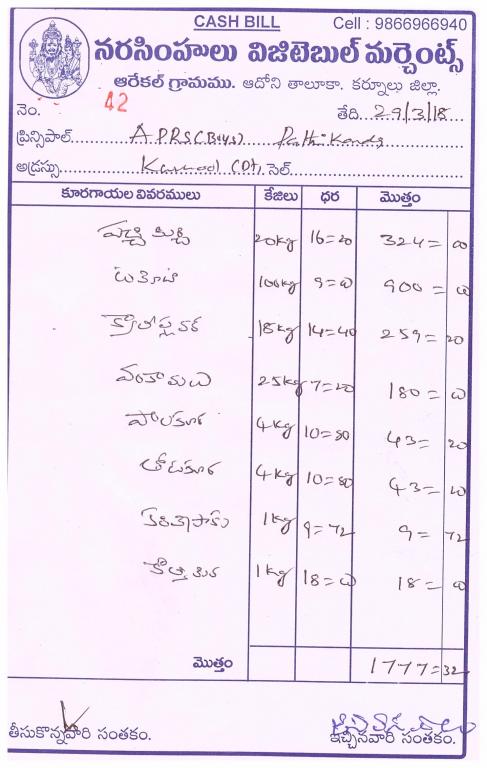 CASH BILL Cell : 9866966940
నరసింహులు విజిటెబుల్ మర్చెంట్స్
ఆరేకల్ గ్రామము. ఆదోని తాలూకా. కర్నూలు జిల్లా.
నెం. 42 తేది...29/3/18...
ప్రిన్సిపాల్...APRS(Boys)
అడ్రస్సు...Kurnool (Dt)...సెల్.
కూరగాయల వివరములు కేజీలు ధర మొత్తం
పచ్చి మిర్చి 20kg 16=20 324=00
టమోటా 100kg 9=00 900=00
18kg 14=40 259=20
వంకాయలు 25kg 7=20 180=00
పాలకూర 4kg 10=80 43=20
తోటకూర 4kg 10=80 43=20
కరివేపాకు 1kg 9=72 9=72
కొత్తిమీర 1kg 18=00 18=00
మొత్తం 1777=32
తీసుకొన్నవారి సంతకం. ఇచ్చినవారి సంతకం.